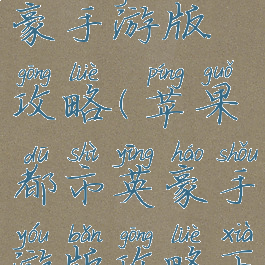 豪手游版
gōng lüè ( píng guǒ
攻略(苹果
dū shì yīng háo shǒu
都市英豪手
yóu bǎn gōng lüè xià
游版攻略下